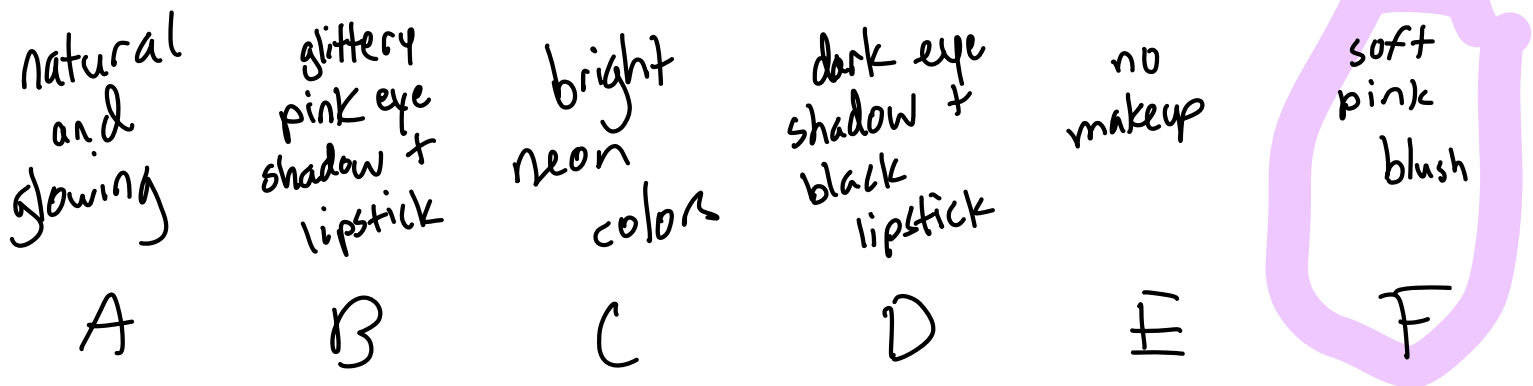 natural
and
glowing
A
glittery
pink eye
shadow +
lipstick
B
bright
neon
colors
C
dark eye
shadow +
black
lipstick
D
no
makeup
E
soft
pink
blush
F